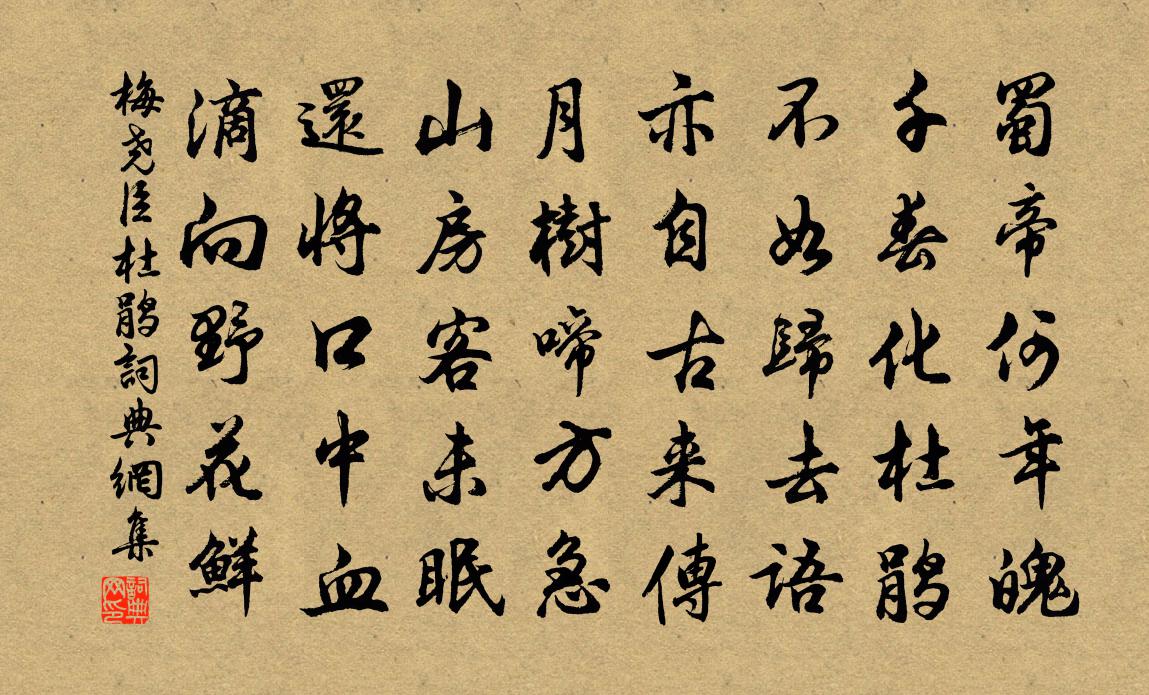 蜀帝何年魄
千春化杜鹃
不如歸去語
亦自古来傳
月樹啼方急
山房客未眠
還將口中血
滴向野花鮮
梅尧臣杜鹃詞典網集
詞典
网印